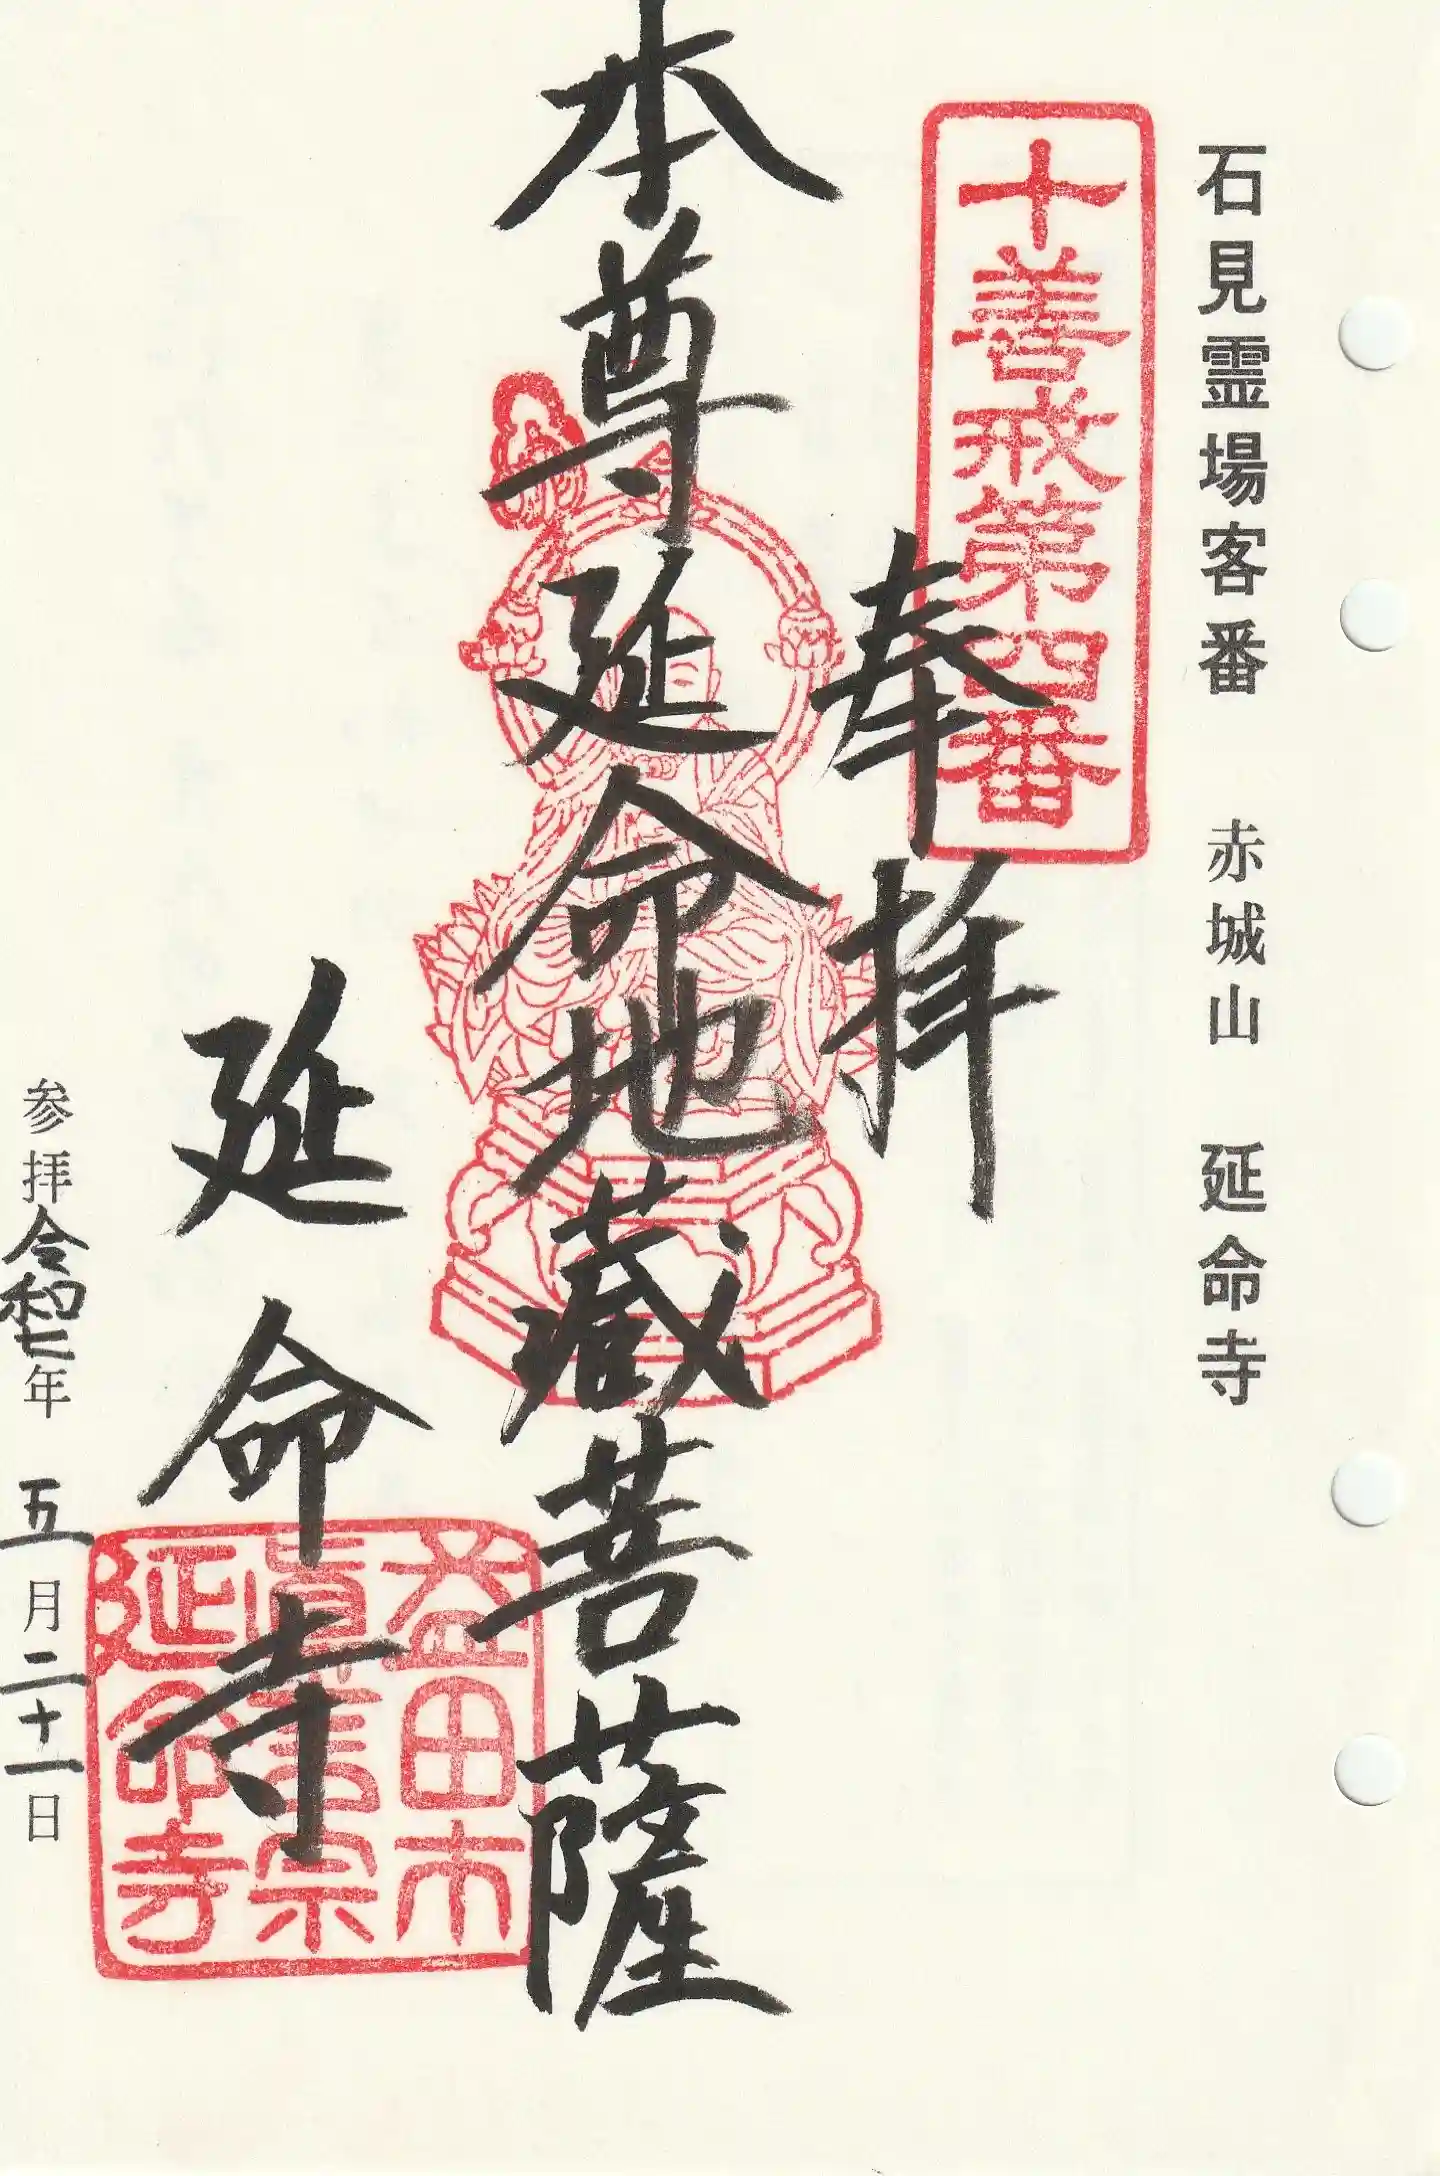 石見霊場客番 赤城山 延命寺
十善戒第四番
奉拝
本尊延命地蔵菩薩
延命寺
益田市
真言宗
延命寺
参拝令和七年 五月二十一日